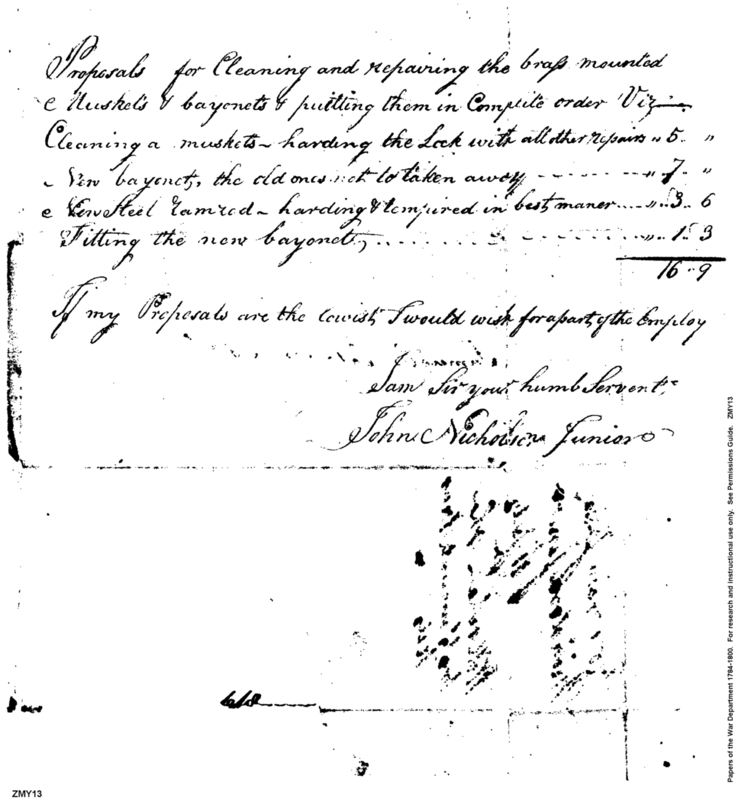 Proposals for Cleaning and repairing the brass mounted
Muskets & bayonets & putting them in Complite order Viz
Cleaning a muskets harding the Lock with all other repairs " 5 "
New bayonet, the old ones not to taken away " 7 "
New Steel ramrod harding & tempired in best maner " 3 6
Fitting the new bayonet " 1 3
16 9
If my Proposals are the lowist I would wish for a part of the Employ
I am Sir your humb Servent
John Nicholson Junior
Papers of the War Department 1784-1800. For research and instructional use only. See Permissions Guide. ZMY13
ZMY13